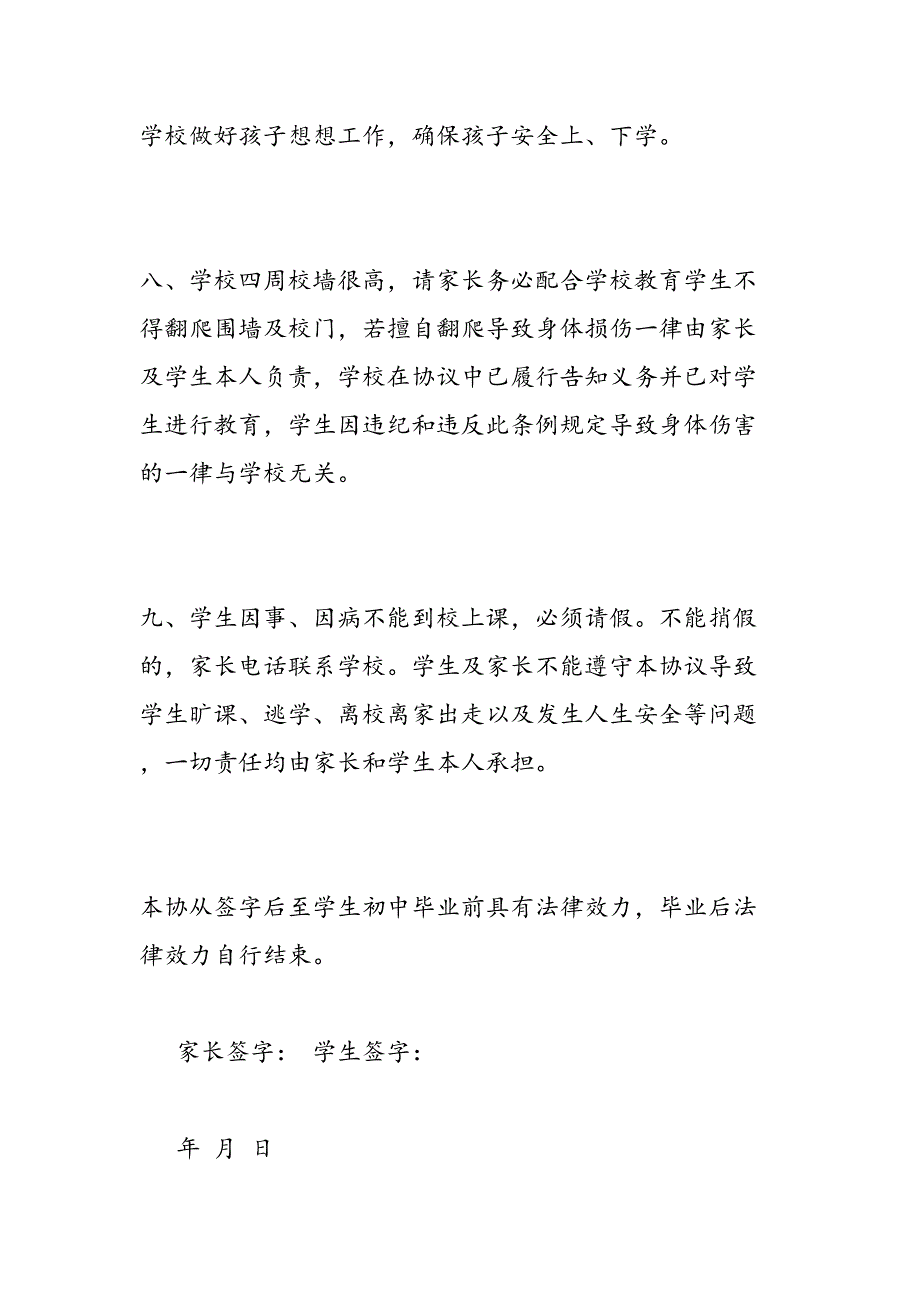 学校做好孩子想想工作，确保孩子安全上、下学。
八、学校四周校墙很高，请家长务必配合学校教育学生不
得翻爬围墙及校门，若擅自翻爬导致身体损伤一律由家长
及学生本人负责，学校在协议中已履行告知义务并已对学
生进行教育，学生因违纪和违反此条例规定导致身体伤害
的一律与学校无关。
九、学生因事、因病不能到校上课，必须请假。不能捎假
的，家长电话联系学校。学生及家长不能遵守本协议导致
学生旷课、逃学、离校离家出走以及发生人生安全等问题
，一切责任均由家长和学生本人承担。
本协从签字后至学生初中毕业前具有法律效力，毕业后法
律效力自行结束。
家长签字： 学生签字：
年 月 日